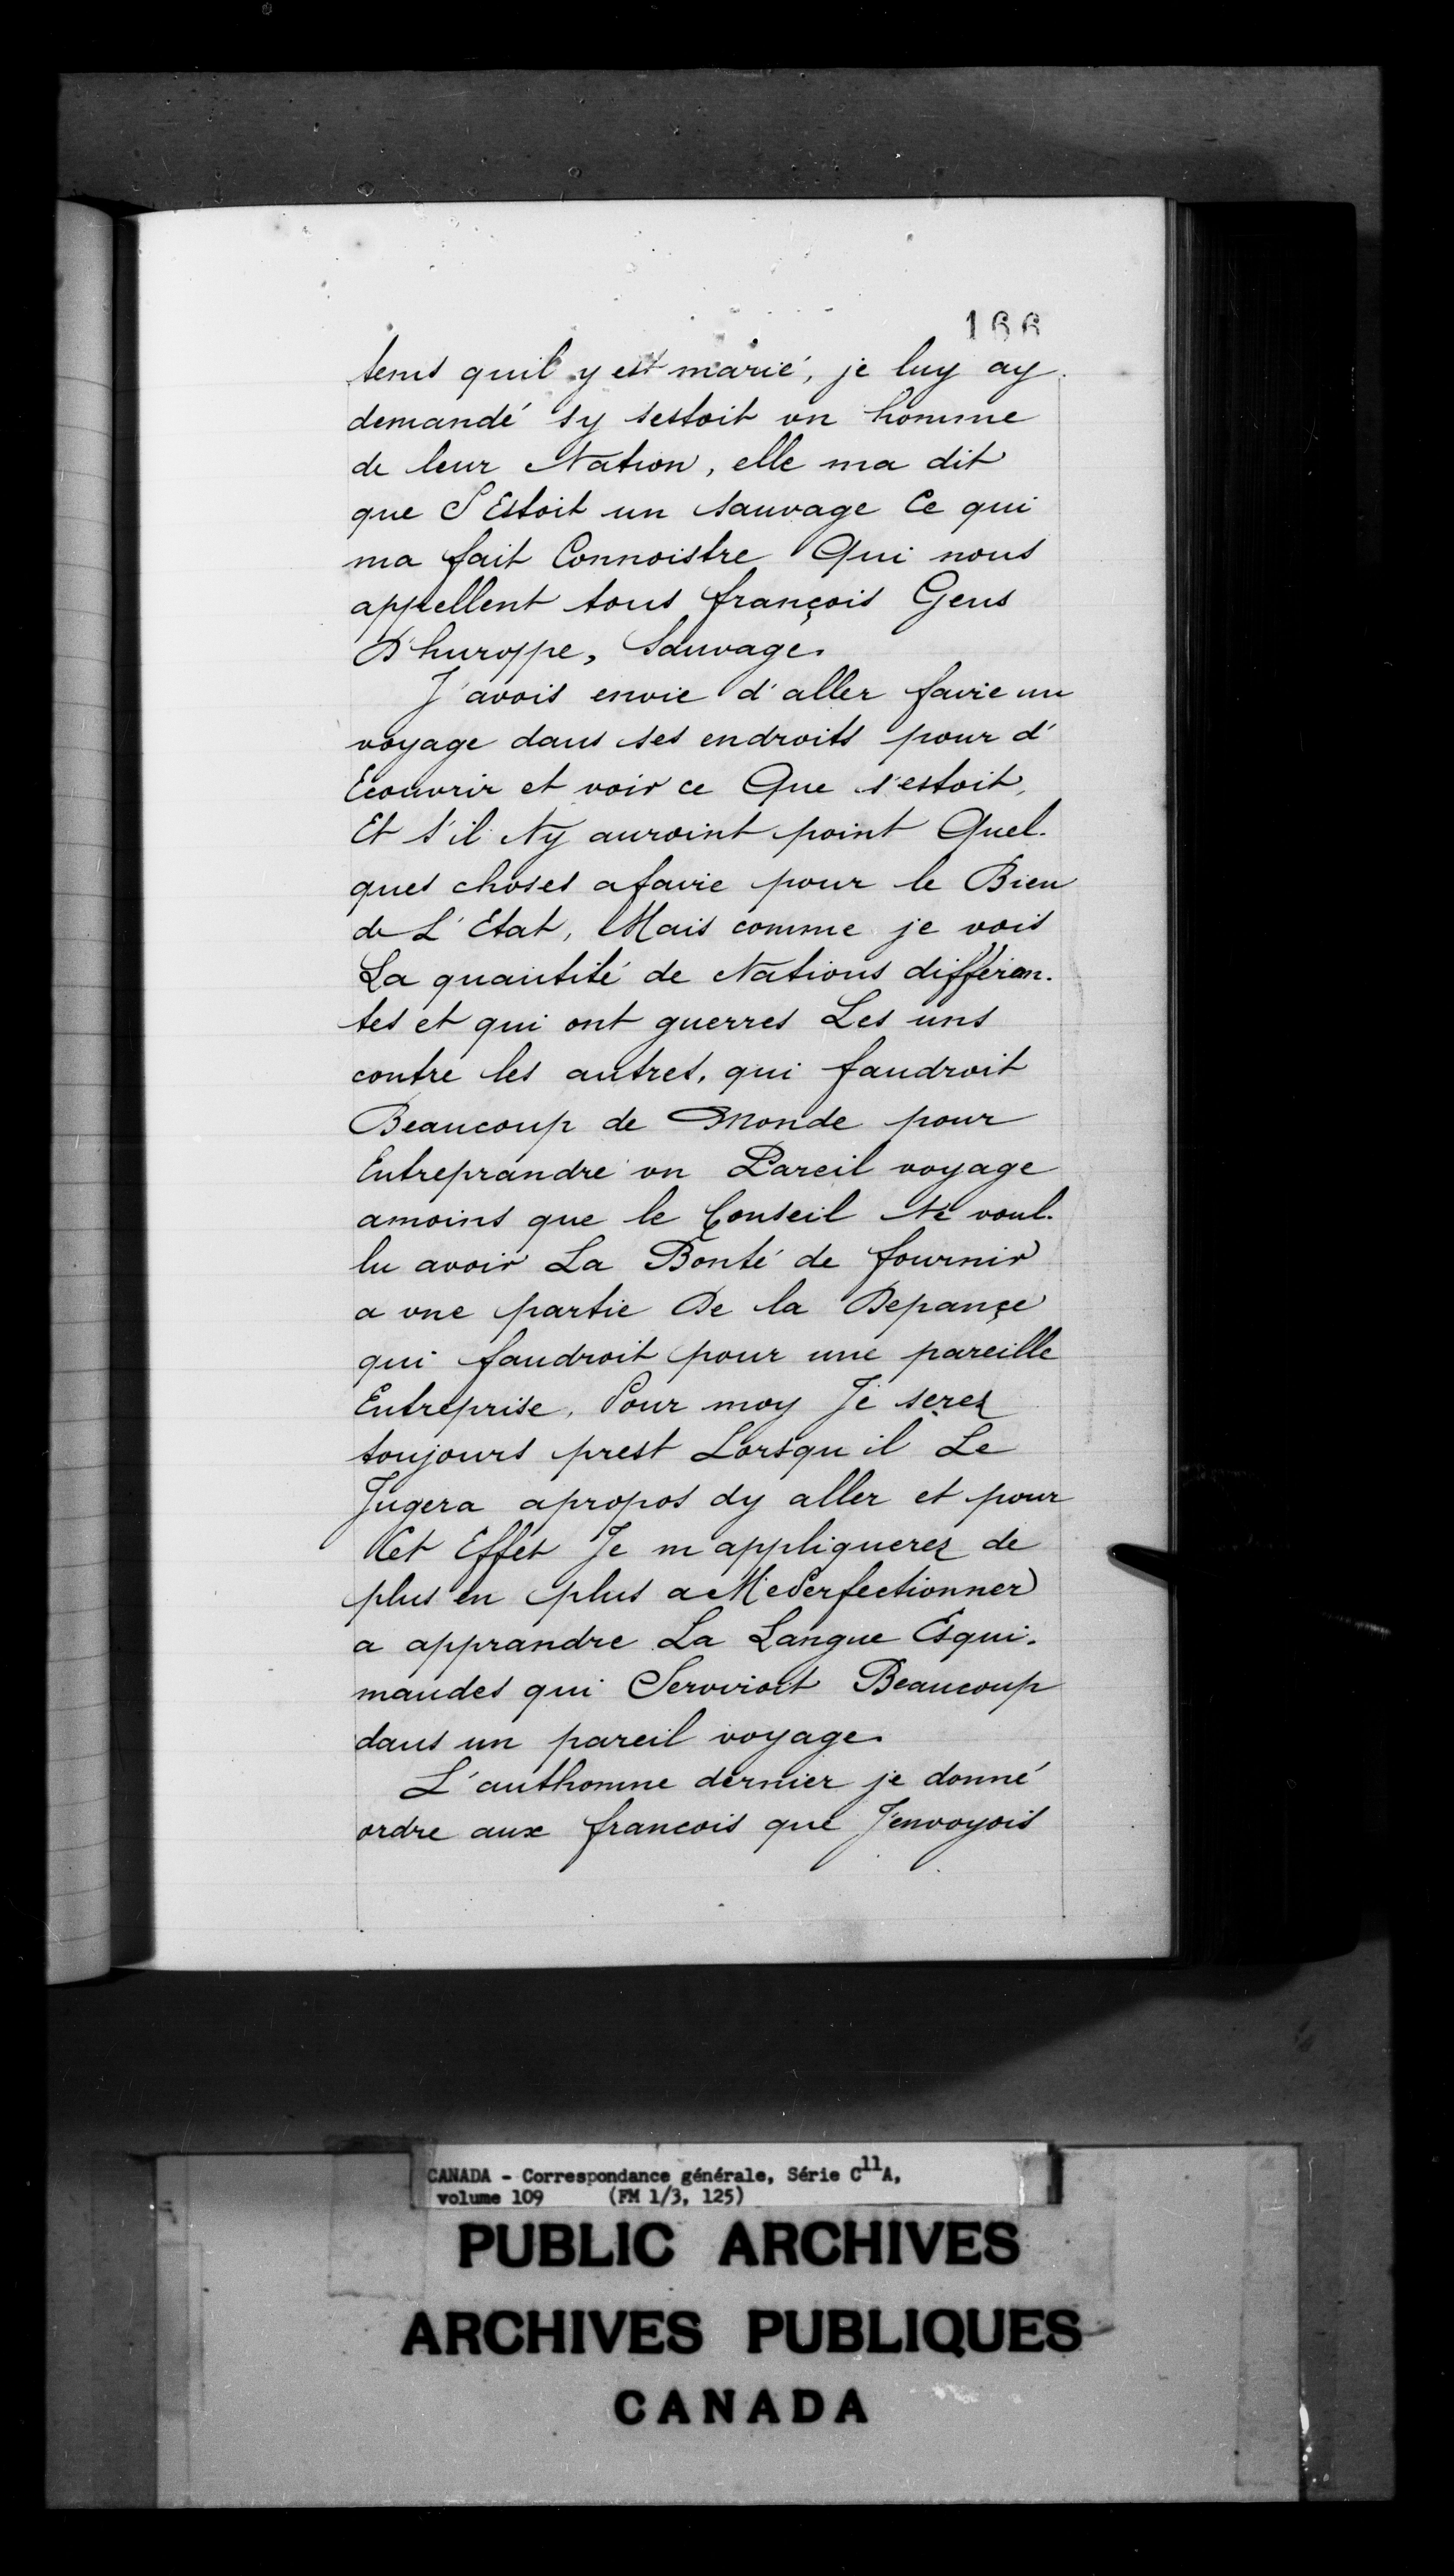 166
tems quil y est marié, je luy ay
demandé sy sestoit un homme
de leur Nation, elle ma dit
que S'Estoit un sauvage Ce qui
ma fait Connoistre Qui nous
appellent tous françois Gens
D'huroppe, Sauvage.
J'avois envie d'aller faire un
voyage dans ses endroits pour d'
Ecouvrir et voir ce Que s'estoit,
Et s'il Ny auroint point Quel-
ques choses afaire pour le Bien
de L'Etat, Mais comme je vois
La quantité de Nations différan-
tes et qui ont guerres Les uns
contre les autres, qui faudroit
Beaucoup de Monde pour
Entreprandre un Pareil voyage
amoins que le Conseil Ne voul-
lu avoir La Bonté de fournir
a une partie De la Depançe
qui faudroit pour une pareille
Entreprise, Pour moy Je serez
toujours prest Lorsqu'il Le
Jugera apropos dy aller et pour
Cet Effet Je m'appliquerez de
plus en plus a MePerfectionner
a apprandre La Langue Esqui-
maudes qui Serviroit Beaucoup
dans un pareil voyage.
L'authomne dernier je donné
ordre aux francois que J'envoyois
CANADA - Correspondance générale, Série C11A,
volume 109 (FM 1/3, 125)
PUBLIC ARCHIVES
ARCHIVES PUBLIQUES
CANADA